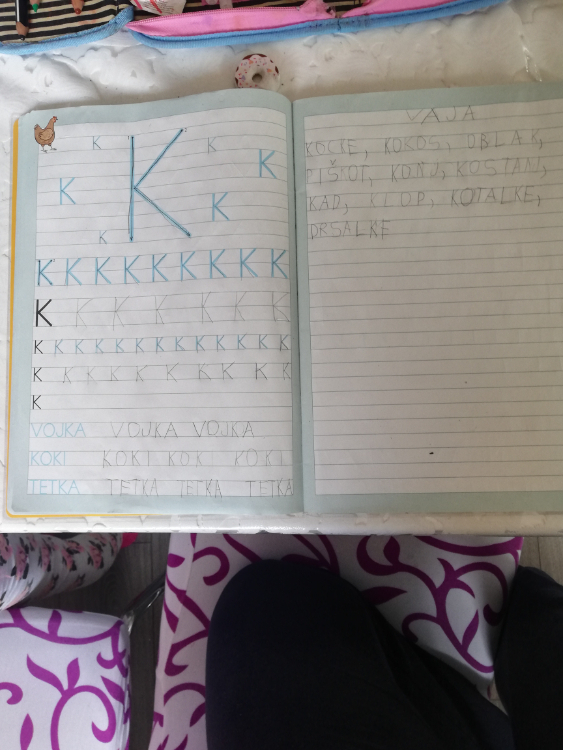 K K K
K K K
K
K K K K K K K K K
K K K K K K K
K K K K K K K K K K K K K
K K K K K K K K K K
K
VOJKA VOJKA VOJKA
KOKI KOKI KOKI KOKI
TETKA TETKA TETKA TETKA
VAJA
KOCKE, KOKOS, OBLAK,
PIŠKOT, KONJ, KOSTANJ,
KAD, KLOP, KOTALKE,
DRSALKE